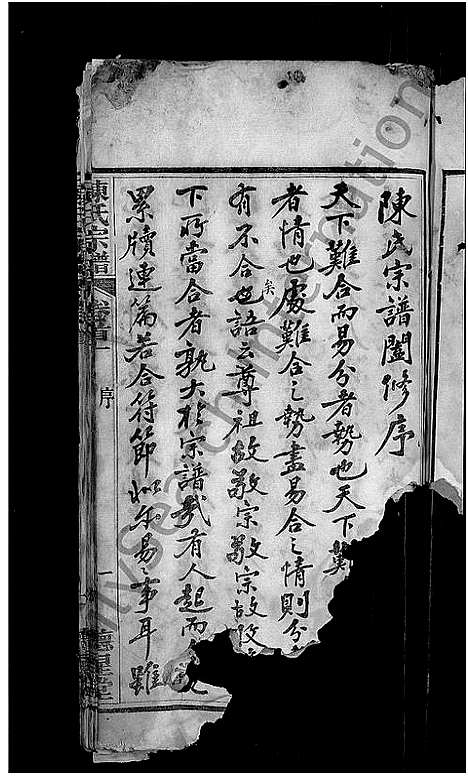 陳氏宗譜闔修序
天下難合而易分者勢也天下
者情也處難合之勢盡易合之情則分
有不合也矣語云尊祖故敬宗敬宗故收
下所當合者孰大於宗譜哉有人起而
累牘連篇若合符節此尔易之事耳雖
陳氏宗譜 卷首 序 一